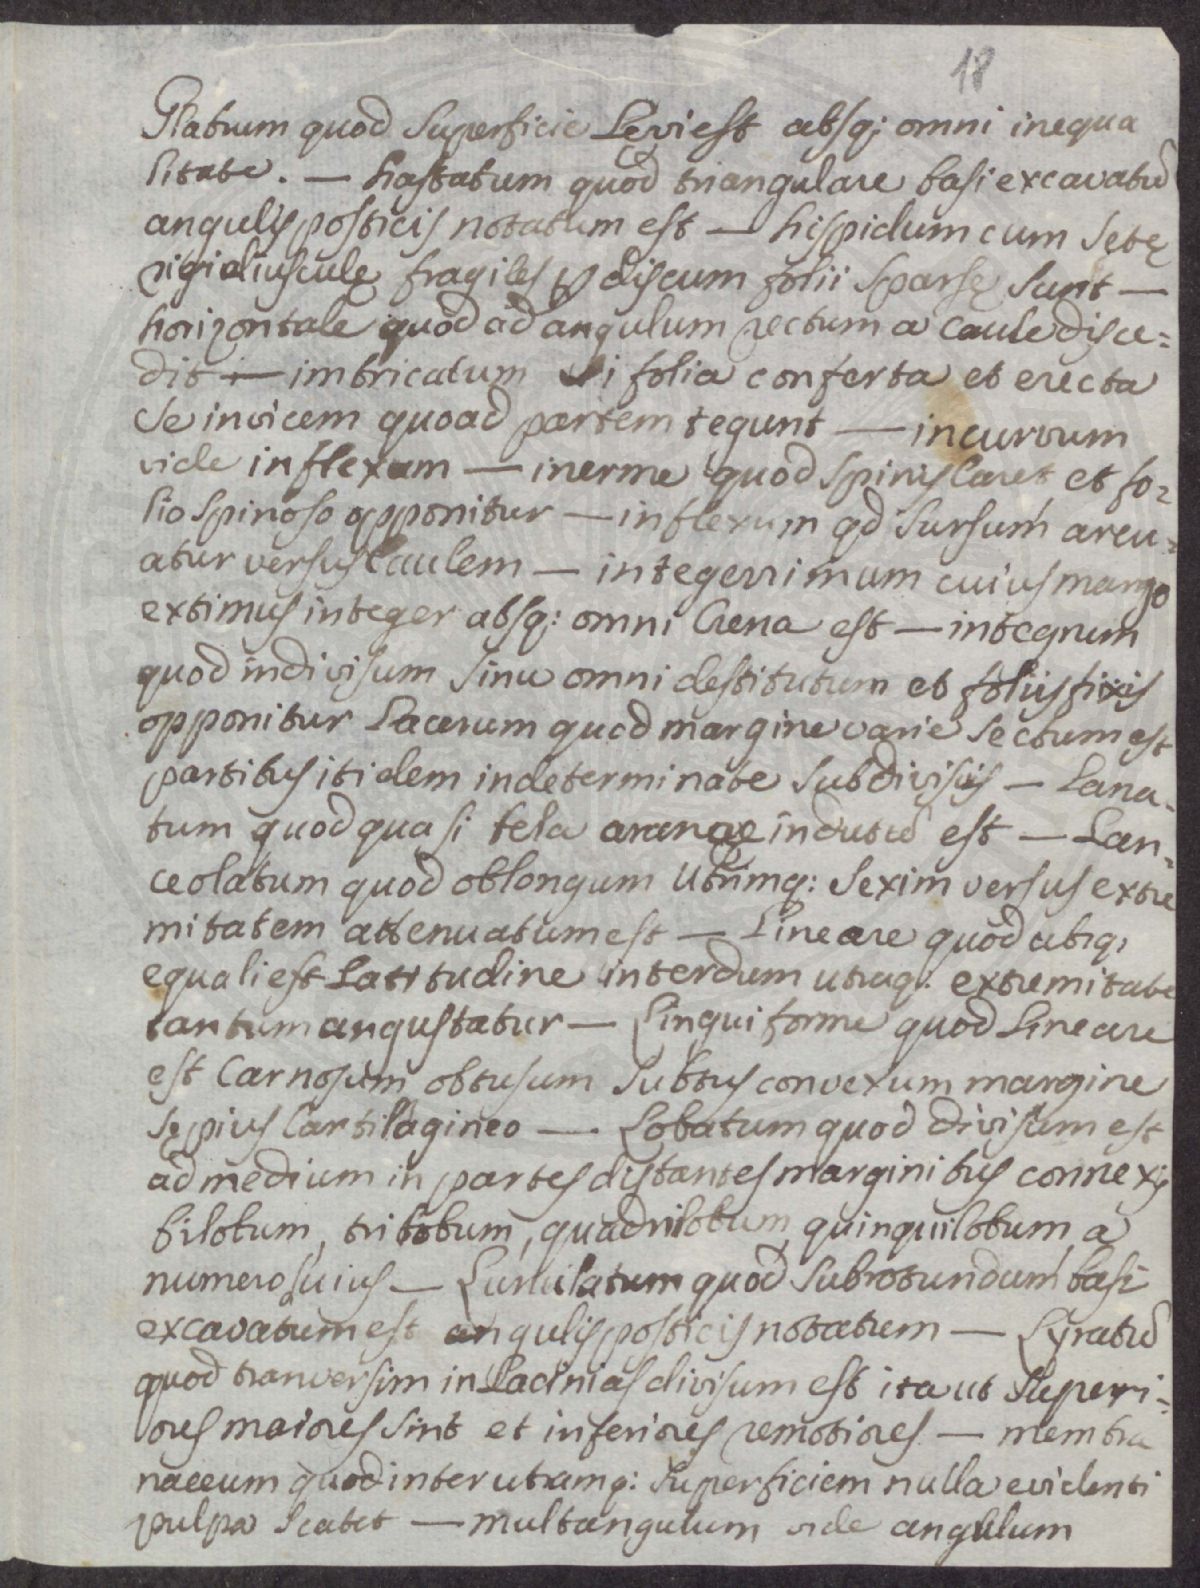 18
Glabrum quod superficie Levi est absq; omni inequa
litate. — hastatum quod triangulare basi excavatū
angulis posticis notatum est — hispidum cum setę
rigidiusculę fragiles p discum folii sparsę sunt —
horizontale quod ad angulum rectum a caule disce=
dit — imbricatum si folia conferta et erecta
se invicem quoad partem tegunt — incurvum
vide inflexum — inerme quod spinis caret et fo=
lio spinoso opponitur — inflexum qd sursum arcu=
atur versus caulem — integerrimum cuius margo
extimus integer absq: omni Crena est — integrum
quod indivisum sinu omni destitutum et foliis fixis
opponitur Lacerum quod margine varie sectum est
partibus itidem indeterminate subdivisis — Lana-
tum quod quasi tela araneę indutū est — Lan=
ceolatum quod oblongum utrimq: sexim versus extre
mitatem attenuatum est — Lineare quod ubiq;
equali est Latitudine interdum utraq: extremitate
tantum angustatur — Linguiforme quod Lineare
est Carnosum obtusum subtus convexum margine
sępius Cartilagineo — Lobatum quod divisum est
ad medium in partes distantes marginibus connexis
bilobum, trilobum, quadrilobum, quinquilobum a
numero suius — Lunulatum quod subrotundum basi
excavatum est angulis posticis notatum — Lyratū
quod tranversim in Lacinias divisum est ita ut superi=
ores maiores sint et inferiores remotiores — membra
naceum quod inter utramq: superficiem nulla evidenti
pulpa scatet — multangulum vide angulum